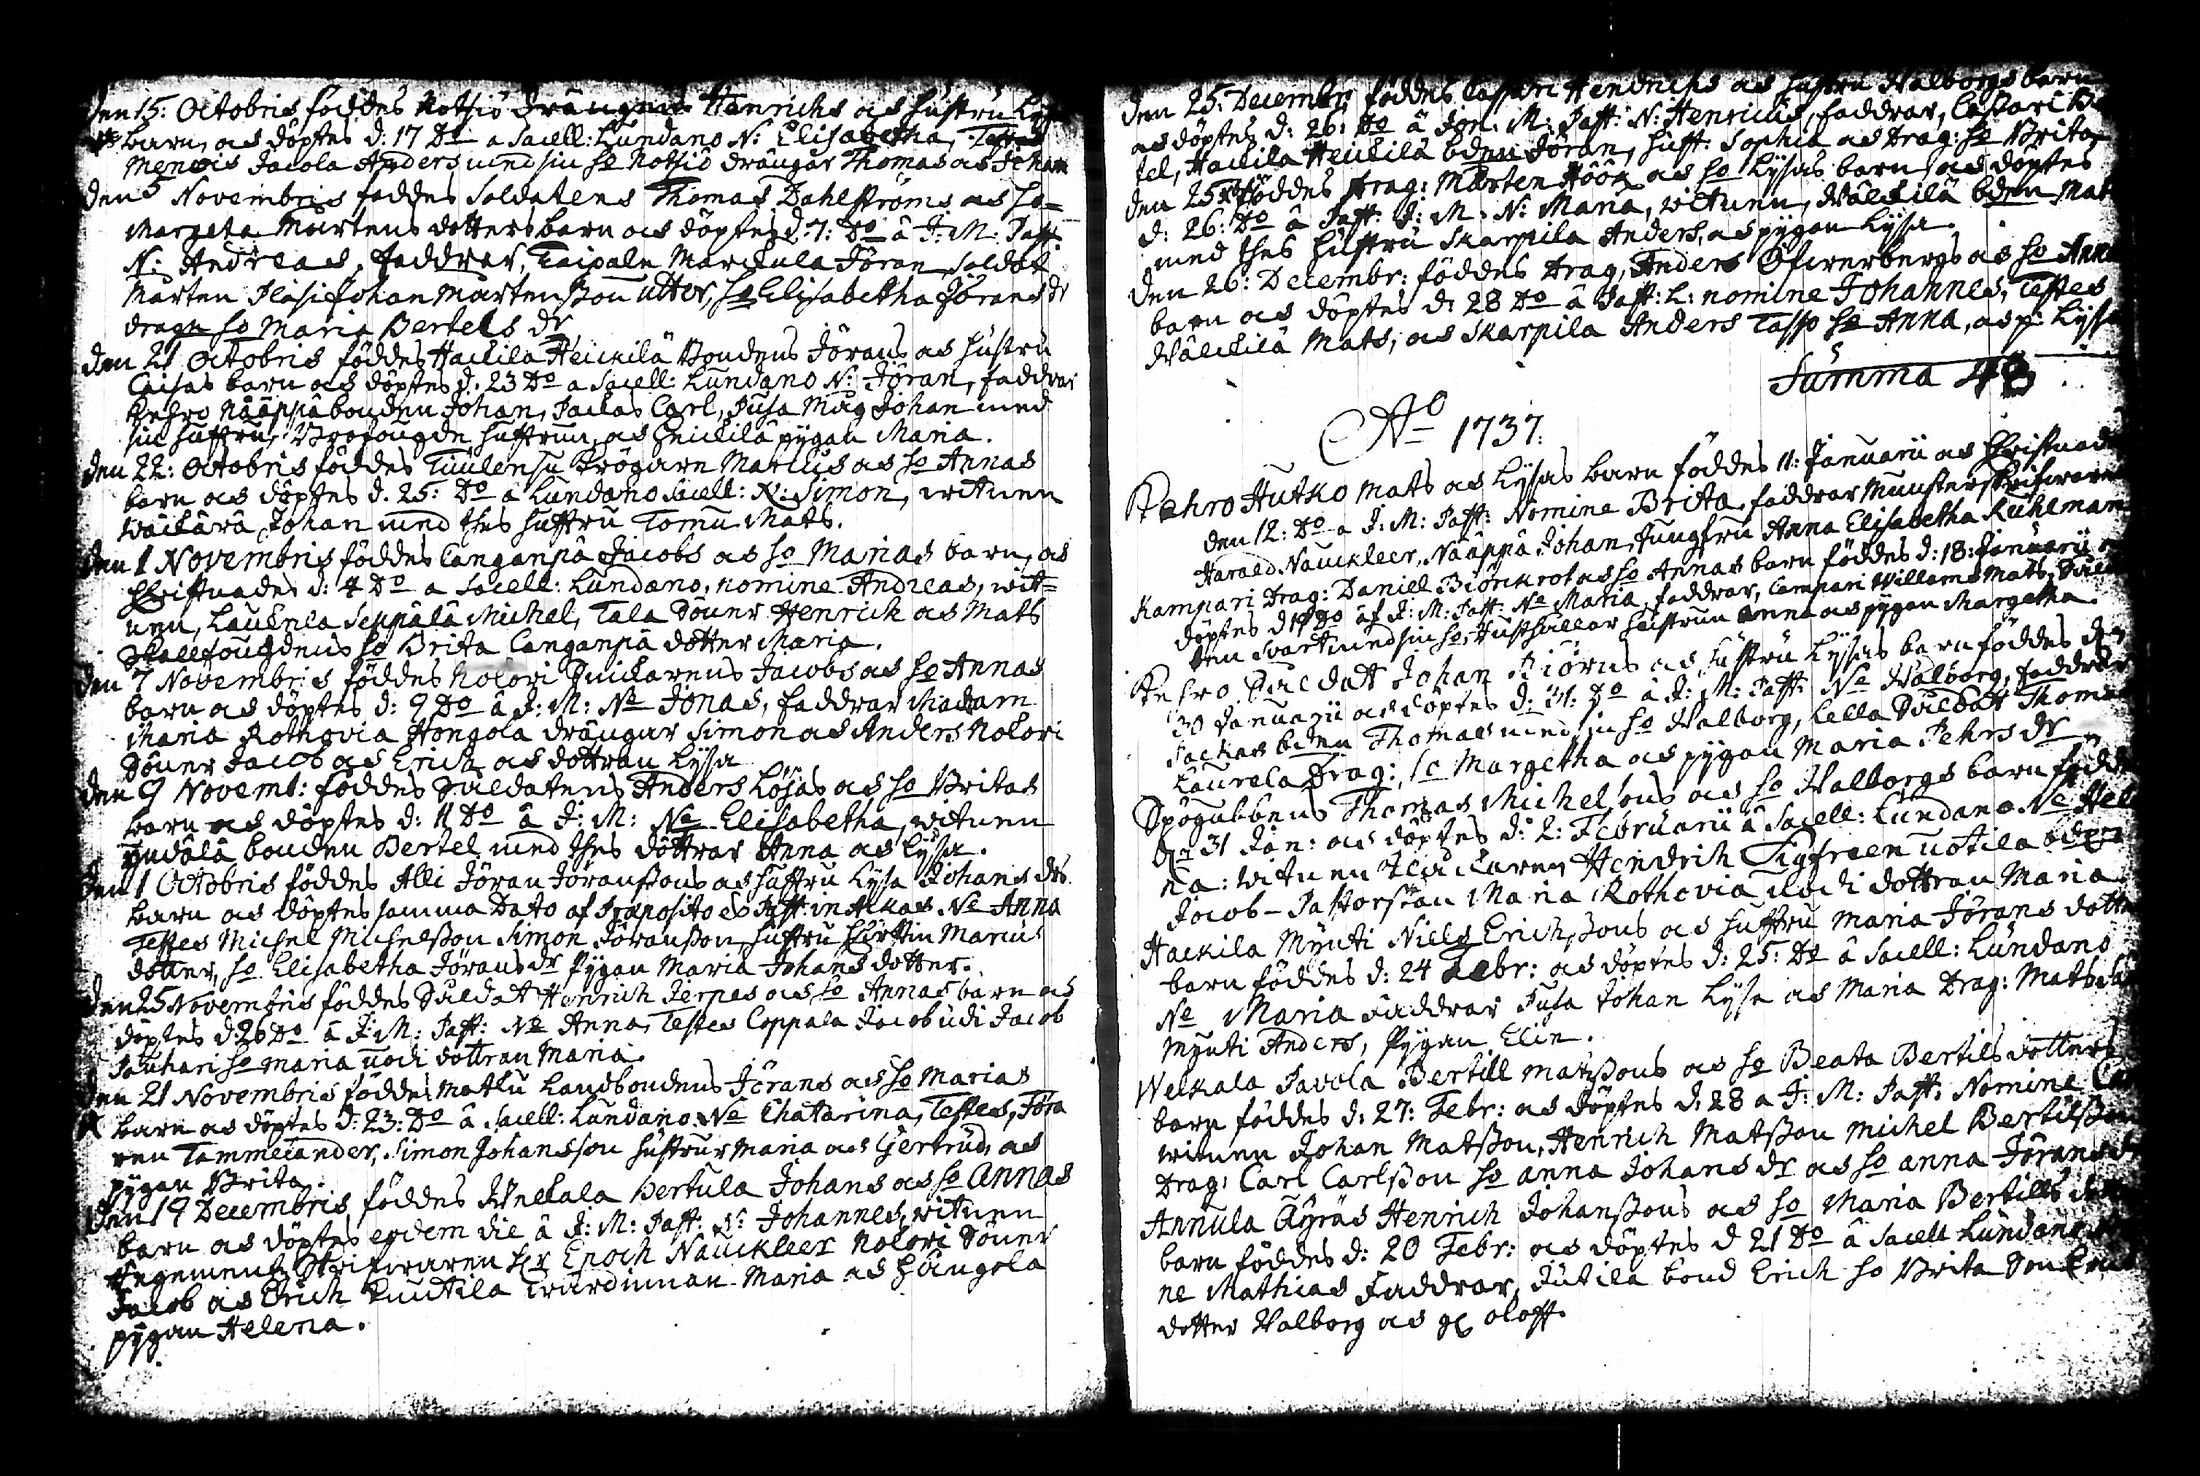 den 15: Octobris föddes Kotsiö drängens Henrichs och hustru Lysæ
barn, och döptes d: 17 Do a Sacell: Lundano N: Elisabetha, Testes
Mensis Jacola Anders med sin ho Kotsiö drängar Thomas och Johan
den 5 Novembris foddes Soldatens Thomas Dahlströms och ho
Margeta Mårtens dotters barn och döptes d. 7: Do â J: M: Past:
N: Andreas, Faddrar, Taipale Marckula Jöran Soldat
Mårten Johan Mårtensson utter, ho Elisabetha Jörans dr
drage ho Maria Bertels dr
den 21 Octobris föddes Hackila Heickilä Bondens Jörans och hustru
Caisas barn och döptes d. 23 Do a Sacell: Lundano N: Jöran, faddrar
Kehro Nääppä bonden Johan, Jackas Carl, Jusa Måg Johan med
sin hustru, Brofougde hustrun, och Heickilä pygan Maria.
den 22: Octobris föddes Tuulensu Krögare Marcus och ho Annas
barn och döptes d. 25: Do â Lundano Sacell: N: Simon, witnen
Wäckärä Johan med thes hustru Tomu Mats.
den 1 Novembris föddes Canganpä Jacobs och ho Marias barn, och
Christnades d: 4 Do a Sacell: Lundano, nomine Andreas, wit=
nen, Laukela Seppälä Michel, Tala Söner Henrich och Mats
Skallfougdens ho Brita Canganpä dotter Maria.
den 7 Novembris föddes Kolori Jacobs och ho Annas
barn och döptes d: 9 Do â J: M: Ne Jonas, faddrar Madam
Maria Rothovia Hongola drängar Simon och Anders Kolori
Söner Jacob och Erich och dottran Lysa
den 9 Novemb: föddes Soldatens Anders Löjas och ho Britas
barn och döptes d: 11 Do â J: M: Ne Elisabetha, witnen
Yndälä bonden Bertel med thes döttrar Anna och Lysa.
den 1 Octobris föddes Alli Jöran Jöranssons och hustru Lysa Johans drs
barn och döptes samma Dato af Præposito & Past: in Ackas Ne Anna
Testes Michel Michelsson Simon Jöransson, hustru Kirstin Marcus
dotter, ho Elisabetha Jörans dr Pygan Maria Johans dotter.
den 25 Novembris föddes Soldat Henrich Jerpes och ho Annas barn och
döptes d: 26 Do â J: M: Past: Ne Anna, Testes Coppala Jacob udi Jacob
Jouhari ho Maria uodi dottran Maria.
den 21 Novembris föddes Matku Landbondens Jörans och ho Marias
barn och döptes d: 23: Do â Sacell: Lundano: Ne Chatarina, Testes, Jöra
ren Tammelander, Simon Johansson hustrur Maria och Gertrud, och
pygan Brita.
den 19 Decembris föddes Wnekala Bertula Johans och ho Annas
barn och döptes eodem die â J: M: Past: N: Johannes, witnen
Regements Skrifwaren Hr Enoch Nauckleer Kolori Söner
Jacob och Erich Kuutila wärdinnan Maria och Hangola
pygan Helena.
den 25: Decembr: föddes Henrichs och hustru Walborgs barn
och döptes d: 26: Do â Jon: M: Past: N: Henricus, faddrar,
tel, Hackila Heickilä bden Jöran, hust: Sophia och Drag: ho Brita,
den 25 föddes Drag: Mårten Höök och ho Lysas barn och döptes
d: 26: Do â Past: J: M: N: Maria, witnen, Wälckilä bden Mats
med thes hustru Skarpila Anders, och pygan Lysa.
den 26: Decembr: föddes Drag, Anders Öfwerbergs och ho Anna
barn och döptes d: 28 Do â Past: L: nomine Johannes, Testes
Wälckilä Mats, och Skarpila Anders Tasso ho Anna, och p: Lyssa
Summa 48
Ao 1737:
Kehro Hutko Mats och Lysas barn föddes 11: Januarii och Christnades
den 12: Do a J: M: Past: Nomine Brita. faddrar Munsterskrifwaren
Harald Nauckleer, Näappä Johan, Jungfru Anna Elisabetha Kuhlman
Kampari Drag: Daniel Biörckrot och ho Annas barn föddes d: 18: Januarii
döptes d 19 Do af J: M: Past: Ne Maria, faddrar, Campari Willams Mats,
ten Svart med sin ho, hustrun Anna och pygan Margetha.
Kehro Soldatt Johan Biörns och hustru Lysas barn föddes d.
30 Januarii och döptes d: 31: Do â J: M: Past: Ne Walborg, faddrar
Jackas bden Thomas med sin ho Walborg, Cella Soldat Thomas
Laurela Drag: ho Margetha och pygan Maria Pehrs dr
Spögubbens Thomas Michelsons och ho Walborgs barn föddes
d. 31 Jan: och döptes d: 2: Februarii â Sacell: Lundano Ne Hele
na: witnen Hendrich Sigfreen uotila bden
Jacob - Pastorskan Maria Rothovia uodi dottran Maria
Hackila Mynti Niels Erichssons och hustru Maria Jörans dotters
barn föddes d: 24 Febr: och döptes d: 25: Do â Sacell: Lundano
Ne Maria Faddrar Jusa Johan Lysa och Maria Drag: Mats
Mynti Anders, Pygan Elin.
Welkala Pavola Bertill Matssons och ho Beata Bertils dotters
barn föddes d: 27: Febr: och döptes d: 28 a J: M: Past: Nomine
witnen Johan Matsson, Henrich Matsson Michel Bertilsson
Drag: Carl Carlsson ho Anna Johans dr och ho Anna Jörans dr
Annula Äyräs Henrich Johanssons och ho Maria Bertills dotters
barn föddes d: 20 Febr: och döptes d 21 Do â Sacell Lundano
ne Mathias Faddrar, Jutila bond Erich ho Brita Son
dotter Walborg och gl oloff.